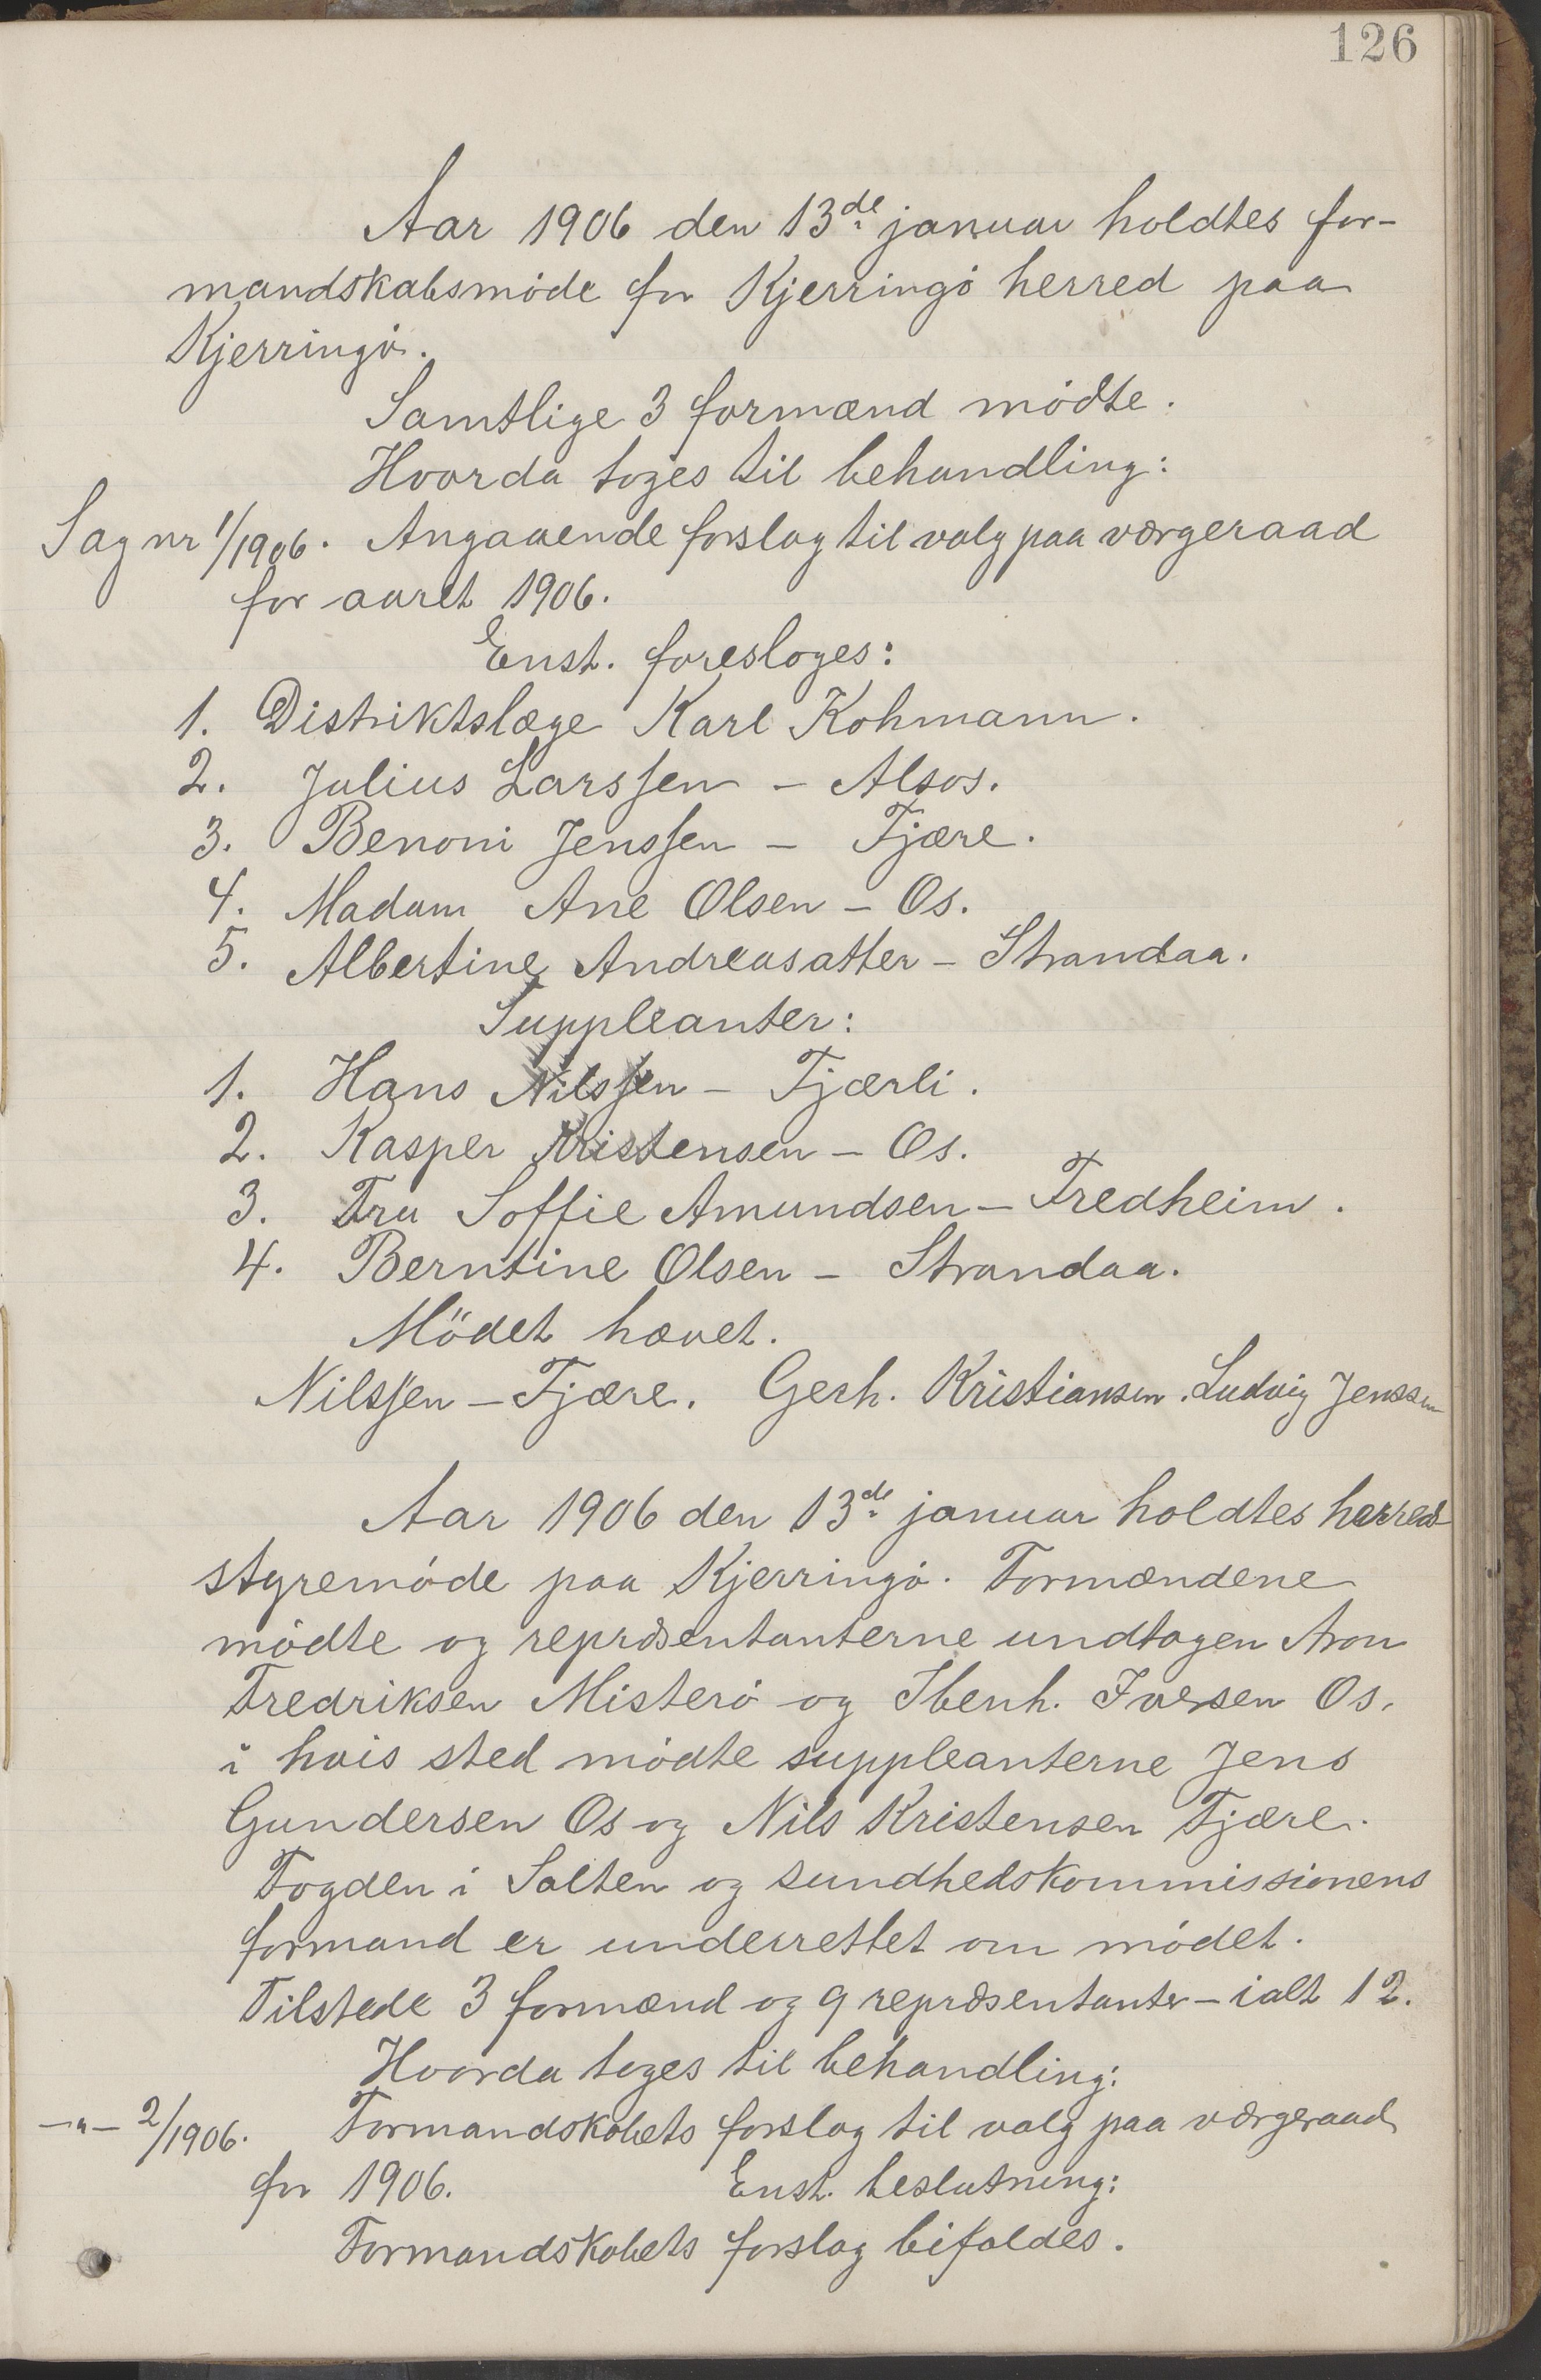 126
Aar 1906 den 13de januar holdtes for-
mandskabsmöde for Kjerringö herred paa
Kjerringö.
Samtlige 3 formænd mödte.
Hvorda toges til behandling:
Sag nr 1/1906. Angaaende forslag til valg paa værgeraad
for aaret 1906.
Enst. foresloges:
1. Distriktslæge Karl Kohmann.
2. Julius Larssen - Alsos.
3. Benoni Jenssen - Fjære.
4. Madam Ane Olsen - Os.
5. Albertine Andreasatter - Strandaa.
Suppleanter:
1. Hans Nilssen - Fjærli.
2. Kasper Kristensen - Os.
3. Fru Soffie Amundsen - Fredheim.
4. Berntine Olsen - Strandaa.
Mödet hævet.
Nilssen - Fjære. Gerh. Kristiansen. Ludvig Jenssen
Aar 1906 den 13de januar holdtes herreds-
styremöde paa Kjerringö. Formændene
mödte og repræsentanterne undtagen Aron
Fredriksen Misterö og Ibenh. Iversen Os,
i hvis sted mödte suppleanterne Jens
Gundersen Os og Nils Kristensen Fjære.
Fogden i Salten og sundhedskommissionens
formand er underrettet om mödet.
Tilstede 3 formænd og 9 repræsentanter - ialt 12.
Hvorda toges til behandling:
-"- 2/1906. Formandskabets forslag til valg paa værgeraad
for 1906. Enst. beslutning:
Formandskabets forslag bifaldes.